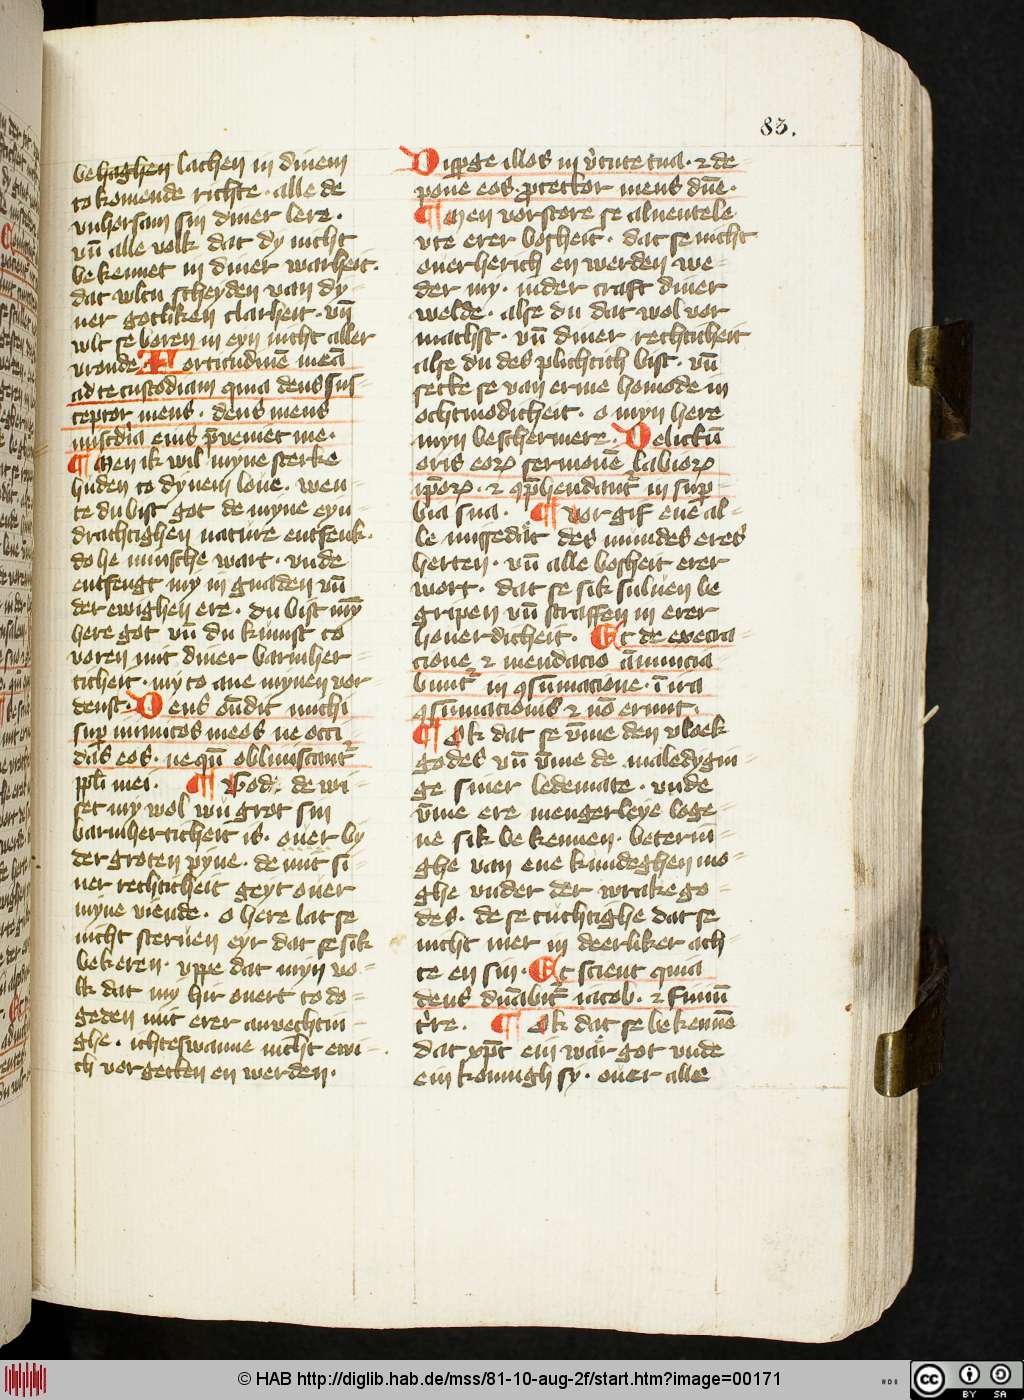 83.
behaghen lachen in dinem
tokomende richte · alle de
vnhorsam sin diner lere ·
vn̄ alle volk dat dy nicht
bekennet in diner warheit ·
dat wltu scheyden van dy-
ner gotliken clarheit · vn̄
wlt se horen in eyn nicht aller
vronde Fortitudinē meā
ad te custodiam quia deus sus-
ceptor meus · deus meus
mis̄cdia eius p̄veniet me ·
¶ Men ik wil myne sterke
huden to dynem loue · wen-
te du bist got de myne eyn-
drachtighen nature entfenk ·
do he minsche wart · vnde
entfengt my in gnaden vn̄
der ewighen ere · du bist mȳ
here got vn̄ du kumst to
voren mit diner barmher-
ticheit · my to ane mynen vor-
denst · Deus on̄dit michi
sup inimicos meos ne occi-
das eos · ne qn̄ obliuiscant᷑
ppl̄i mei · ¶ God de wi-
set my wol wu grot sin
barmherticheit is · ouer by
der groten pyne · de mit si-
ner rechticheit geyt ouer
myne viende · o here lat se
nicht steruen eyr dat se sik
bekeren · vppe dat myn vo-
lk dat my hir ouert to do-
geden mit erer anvechtin-
ghe · ichteswanne nicht ewi-
ch vorgetten en werden ·
Disp̱ge illos in v̓tute tua · ⁊ de-
pone eos p̱tector meus dn̄e ·
¶ Men vorstore se alnentele
vte erer bosheit · dat se nicht
ouerherich en werden we-
der my · in der craft diner
welde · alse du dat wol vor-
machst · vn̄ diner rechticheit
alse du des plichtich bist · vn̄
sette se van erme homode in
ochtmodicheit · o myn here
myn beschermere · Delictū
oris eoꝝ sermonē labioꝝ
ip̄oꝝ · ⁊ ꝯp̄hendant᷑ in sup̱-
bia sua · ¶ Vorgif ene al-
le missedat des mundes eres
herten · vn̄ alle bosheit erer
wort · dat se sik suluen be-
gripen vn̄ straffen in erer
houerdicheit · Et de execra-
cione ⁊ mendacio ānuncia-
bunt᷑ in ꝯsūmacione · ī ira
ꝯsūmacionis ⁊ nō erunt ·
¶ Ok dat se v̄me den vloek
godes vn̄ v̄me de maledygin-
ge siner ledemate · vnde
v̄me ere mengerleye loge-
ne sik bekennen · beterin-
ghe van ene kundeghen mo-
ghe vnder der wrake go-
des · de se tuchtighe dat se
nicht mer in deerliker ach-
te en sin · Et scient quia
deus dn̄abit᷑ iacob · ⁊ finiū
t̓re · ¶ Ok dat se bekennē
dat xp̄c ein war got vnde
ein konnigh sy · ouer alle
© HAB http://diglib.hab.de/mss/81-10-aug-2f/start.htm?image=00171
HAB
cc
BY SA